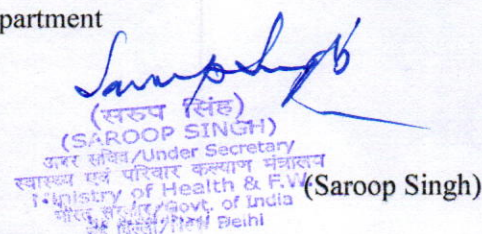 partment
(सरुप सिंह)
(SAROOP SINGH)
अवर सचिव/Under Secretary
स्वास्थ्य एवं परिवार कल्याण मंत्रालय
Ministry of Health & F.W.
(Saroop Singh)
भारत सरकार/Govt. of India
नई दिल्ली/New Delhi